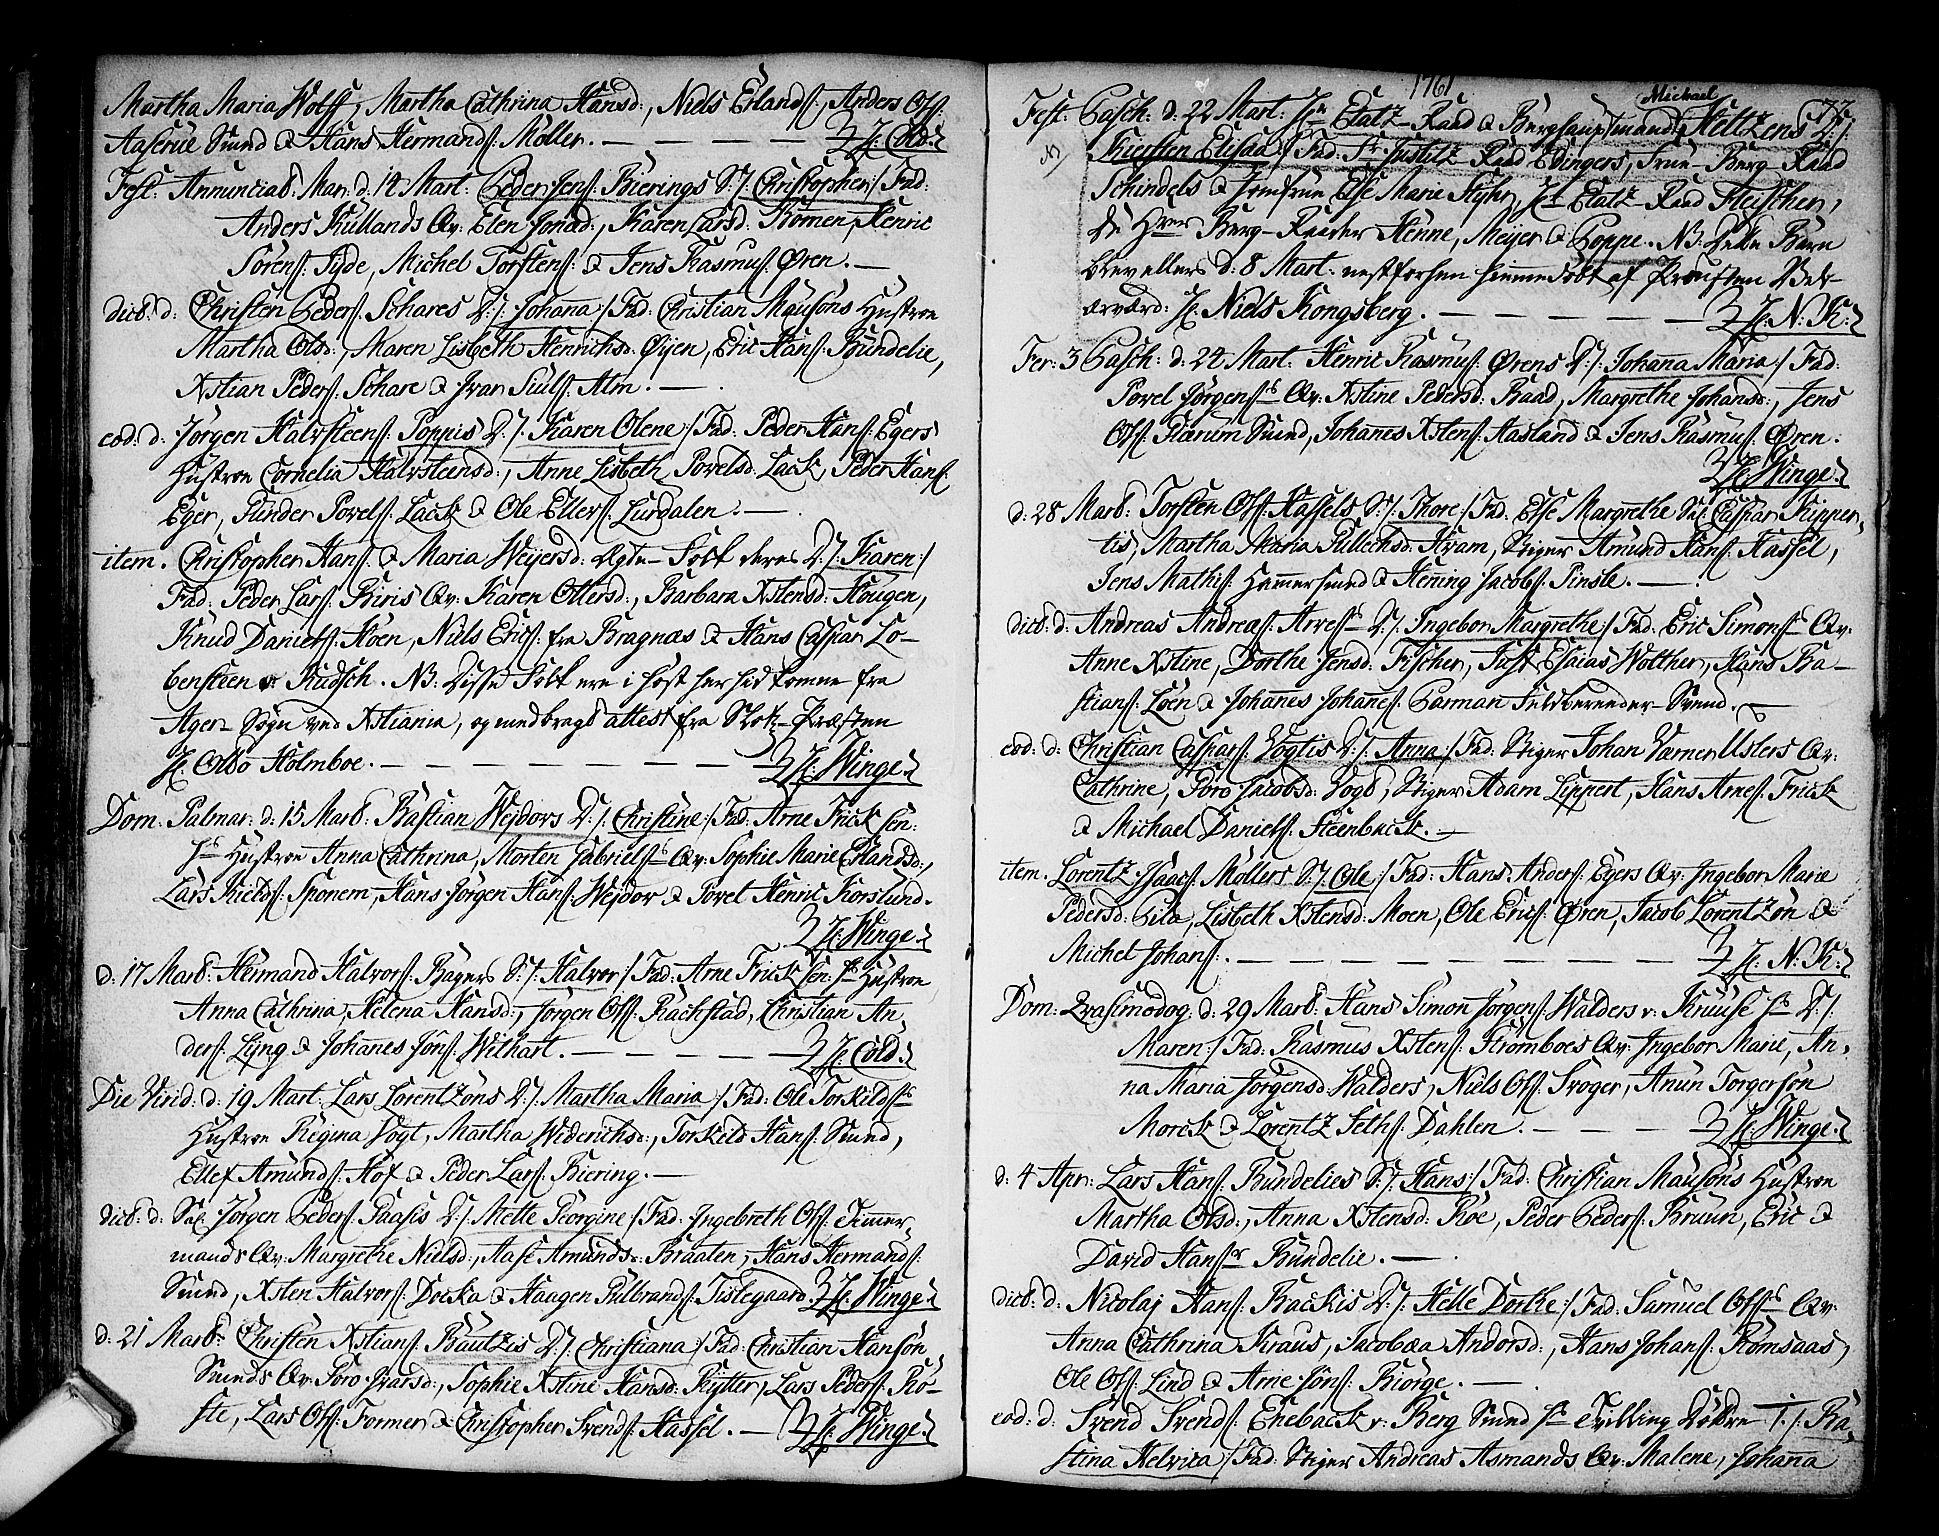 Martha Maria Wolff, Martha Cathrina Hansd:, Niels Erlands:, Anders Ols:
Aaserüe Smed & Hans Hermands: Møller. — — — — — H: Cold.
Fest: Annunciat: Mar: d: 14 Mart: Peder Jens: Bierings S: /: Christopher :/ Fad:
Anders Kullands Qv: Elen Jonæd:, Karen Larsd: Komen, Henric
Sörens: Tyde, Michel Torstens: & Jens Rasmus: Øren. —
dict: d: Christen Peders: Schares D: /: Johana :/ Fad: Christian Mausöns Hustroe
Martha Olsd:, Maren Lisbeth Henrichsd: Øijen, Eric Hans: Bündelie,
Xstian Peders: Schare & Ivar Siuls: Alm. —
eod: d: Jørgen Halvsteens: Poppis D: /: Karen Olene :/ Fad: Peder Hans: Egers
Hustroe Cornelia Halvsteensd:, Anne Lisbeth Povelsd: Lack, Peder Hans:
Eger, Gunder Povels: Lack & Ole Ellefs: Lurdalen. —
item. Christopher Hans: & Maria Weijersd: Ægte-Folk deres D: /: Karen :/
Fad: Peder Lars: Biris Qv: Karen Ottersd:, Barbara Xstensd: Hougen,
Knud Daniels: Hoen, Niels Erics: fra Bragnæs & Hans Caspar Lo-
bensteen v: Rudsch. NB: Disse Folk ere i høst her hid komne fra
Ager-Sogn ved Xstiania, og medbragt attest fra Slots-Præsten
H: Otto Holmboe. — — — — — — — — H: Winge.
Dom: Palmar: d: 15 Mart: Bastian Wejdors D: /: Christine :/ Fad: Arne Frick sen:
hs Hustroe Anna Cathrina, Morten Gabriels: Qv: Sophie Marie Erlandsd:,
Lars Kields: Sponem, Hans Jørgen Hans: Wejdor & Povel Henric Korslund.
H: Winge.
d: 17 Mart: Hermand Halvors: Bagers S: /: Halvor :/ Fad: Arne Frick sen: hs Hustroe
Anna Cathrina, Helena Hansd:, Jørgen Ols: Rachstad, Christian An-
ders: Ljng & Johanes Jøns: Withart. — — — — — H: Cold.
Die Virid: d: 19 Mart: Lars Lorentzöns D: /: Martha Maria :/ Fad: Ole Torkilds:
Hustroe Regina Vogt, Martha Widerichsd:, Torkild Hans: Smed,
Ellef Amunds: Hof & Peder Lars: Biering. —
dict: d: Sal: Jørgen Peders: Paasis D: /: Mette Georgine :/ Fad: Ingebreth Ols: Timmer-
mands Qv: Margrethe Nielsd:, Aase Amundsd: Braaten, Hans Hermands:
Smed, Xsten Halvors: Docka & Haagen Gulbrands: Tislegaard. H: Winge.
d: 21 Mart: Christen Xstians: Bautzis D: /: Christiana :/ Fad: Christian Hansön
Smeds Qv: Goro Ivarsd:, Sophie Xstine Hansd: Rytter, Lars Peders: Rö-
ste, Lars Ols: Former & Christopher Svends: Hassel. — H: Winge.
1761
77
Michael
Fest: Pasch: d: 22 Mart: Hr Etatz-Raad & Berghauptmand Heltzens D: /:
N/ Kiersten Elisaa :/ Fad: Fr Justitz-Raad Edingers, Frue Berg-Raad
Schindels & Jomfrue Else Marie Stÿhr, Hr Etatz-Raad Fleischer,
De Hrer Berg-Raader Henne, Meijer & Poppe. NB: Dette Barn
blev ellers d: 8 Mart: nestforhen hiemmedøbt af Provsten Vel-
ærværd: H: Niels Kongsberg. — — — — — — H: N: K:
Fer: 3 Pasch: d: 24 Mart: Henric Rasmus: Ørens D: /: Johanna Maria :/ Fad:
Povel Jörgens: Qv: Xstine Pedersd: Baad, Margrethe Johansd:, Jens
Ols: Giarum Smed, Johanes Xstens: Aasland & Jens Rasmus: Øren.
H: Winge.
d: 28 Mart: Torsten Ols: Hassels S: /: Thore :/ Fad: Else Margrethe Sal: Caspar Kipper-
tis, Martha Maria Gullechsd: Kram, Stiger Amund Hans: Hassel,
Jens Mathis: Hamersmed & Hening Jacobs: Pinsle. —
dict: d: Andreas Andreæs: Arves: D: /: Ingebor Margrethe :/ Fad: Eric Simons: Qv:
Anne Xstine, Dorthe Jensd: Fischer, Just Esaias Wolther, Hans Ba-
stians: Löen & Johannes Johanes: Garman Feldbereder-Svend. —
eod: d: Christian Caspars: Vogtis D: /: Anna :/ Fad: Stiger Johan Varner Uslers Qv:
Cathrine, Goro Jacobsd: Vogt, Stiger Adam Lippert, Hans Arnes: Frick
& Michael Daniels: Steenback. —
item. Lorentz Isaacs: Møllers S: /: Ole :/ Fad: Hans Anders: Egers Qv: Ingebor Marie
Pedersd: Gila, Lisbeth Xstensd: Moen, Ole Erics: Øren, Jacob Lorentzön &
Michel Johans: — — — — — — — — H: N: K:
Dom: Qvasimodog: d: 29 Mart: Hans Simon Jørgens: Walders v: Kruuse hs D: /:
Maren :/ Fad: Rasmus Xstens: Stromboes Qv: Ingebor Marie, An-
na Maria Jørgensd: Walders, Niels Ols: Svoger, Anün Torgersön
Morck & Lorentz Seths: Dahlen. — — — — H: Winge.
d: 4 Apr: Lars Hans: Bündelies S: /: Hans :/ Fad: Christian Mausöns Hustroe
Martha Olsd:, Anna Xstensd: Röe, Peder Peders: Bruun, Eric &
David Hansr Bündelie. —
dict: d: Nicolaj Hans: Backis D: /: Helle Dorthe :/ Fad: Samuel Ols: Qv:
Anna Cathrina Kraus, Jacobæa Andorsd:, Hans Johans: Romsaas,
Ole Ols: Lind & Arne Jøns: Biorge. —
eod: d: Svend Svends: Eneback v: Berg Smed hs Tvilling Døttre 1. /: Ba-
stina Helvica :/ Fad: Stiger Andreas Asmands Qv: Malene, Johanna